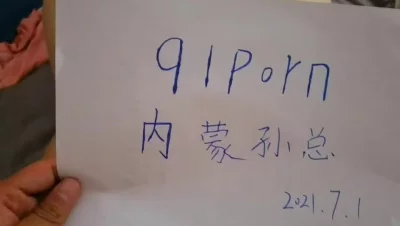 91porn
内蒙孙总
2021.7.1